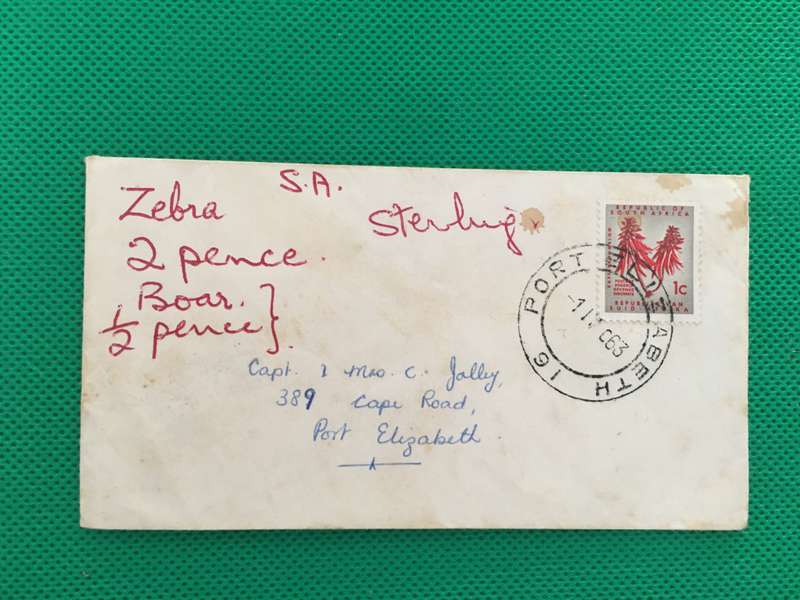 S.A.
Zebra
Sterling
2 pence.
Boar. }
1/2 pence }.
REPUBLIC OF
SOUTH AFRICA
1c
REPUBLIEK VAN
SUID-AFRIKA
PORT ELIZABETH 16
Capt. & Mrs. C. Jolley,
389 Cape Road,
Port Elizabeth.